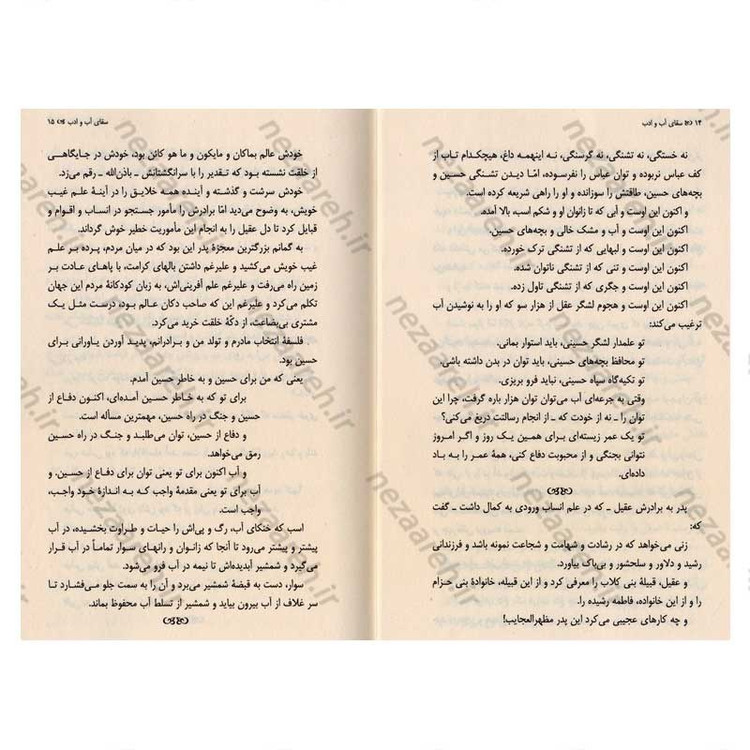 ۱۴ سقای آب و ادب
نه خستگی، نه تشنگی، نه گرسنگی، نه اینهمه داغ، هیچکدام تاب از
کف عباس نربوده و توان عباس را نفرسوده، امّا دیدن تشنگی حسین و
بچه‌های حسین، طاقتش را سوزانده و او را راهی شریعه کرده است.
و اکنون این اوست و آبی که تا زانوان او و شکم اسب، بالا آمده.
اکنون این اوست و آب و مشک خالی و بچه‌های حسین.
اکنون این اوست و لبهایی که از تشنگی ترک خورده.
اکنون این اوست و تنی که از تشنگی ناتوان شده.
اکنون این اوست و جگری که از تشنگی تاول زده.
اکنون این اوست و هجوم لشگر عقل از هزار سو که او را به نوشیدن آب
ترغیب می‌کند:
تو علمدار لشگر حسینی، باید استوار بمانی.
تو محافظ بچه‌های حسینی، باید توان در بدن داشته باشی.
تو تکیه‌گاه سپاه حسینی، نباید فرو بریزی.
وقتی به جرعه‌ای آب می‌توان توان هزار باره گرفت، چرا این
توان را ـ نه از خودت که ـ از انجام رسالتت دریغ می‌کنی؟
تو یک عمر زیسته‌ای برای همین یک روز و اگر امروز
نتوانی بجنگی و از محبوبت دفاع کنی، همهٔ عمر را به باد
داده‌ای.
پدر به برادرش عقیل ـ که در علم انساب ورودی به کمال داشت ـ گفت
که:
زنی می‌خواهد که در رشادت و شهامت و شجاعت نمونه باشد و فرزندانی
رشید و دلاور و سلحشور و بی‌باک بیاورد.
و عقیل، قبیلهٔ بنی کلاب را معرفی کرد و از این قبیله، خانوادهٔ بنی حزام
را و از این خانواده، فاطمه رشیده را.
و چه کارهای عجیبی می‌کرد این پدر مظهرالعجایب!
سقای آب و ادب ۱۵
خودش عالم بماکان و مایکون و ما هو کائن بود، خودش در جایگاهی
از خلقت نشسته بود که تقدیر را با سرانگشتانش ـ باذن‌الله ـ رقم می‌زد.
خودش سرشت و گذشته و آینده همه خلایق را در آینهٔ علم غیب
خویش، به وضوح می‌دید امّا برادرش را مأمور جستجو در انساب و اقوام و
قبایل کرد تا دل عقیل را به انجام این مأموریت خطیر خوش گرداند.
به گمانم بزرگترین معجزهٔ پدر این بود که در میان مردم، پرده بر علم
غیب خویش می‌کشید و علیرغم داشتن بالهای کرامت، با پاهای عادت بر
زمین راه می‌رفت و علیرغم علم آفرینی‌اش، به زبان کودکانهٔ مردم این جهان
تکلم می‌کرد و علیرغم این که صاحب دکان عالم بود، درست مثل یک
مشتری بی‌بضاعت، از دکّهٔ خلقت خرید می‌کرد.
فلسفهٔ انتخاب مادرم و تولد من و برادرانم، پدید آوردن یاورانی برای
حسین بود.
یعنی که من برای حسین و به خاطر حسین آمدم.
برای تو که به خاطر حسین آمده‌ای، اکنون دفاع از
حسین و جنگ در راه حسین، مهمترین مسأله است.
و دفاع از حسین، توان می‌طلبد و جنگ در راه حسین
رمق می‌خواهد.
و آب اکنون برای تو یعنی توان برای دفاع از حسین. و
آب برای تو یعنی مقدمهٔ واجب که به اندازهٔ خود واجب،
واجب است.
اسب که خنکای آب، رگ و پی‌اش را حیات و طراوت بخشیده، در آب
پیشتر و بیشتر می‌رود تا آنجا که زانوان و رانهای سوار تماماً در آب قرار
می‌گیرد و شمشیر آبدیده‌اش تا نیمه در آب فرو می‌شود.
سوار، دست به قبضهٔ شمشیر می‌برد و آن را به سمت جلو می‌فشارد تا
سر غلاف از آب بیرون بیاید و شمشیر از تسلط آب محفوظ بماند.
nezaareh.ir
nezaareh.ir
nezaareh.ir
nezaareh.ir
nezaareh.ir
nezaareh.ir